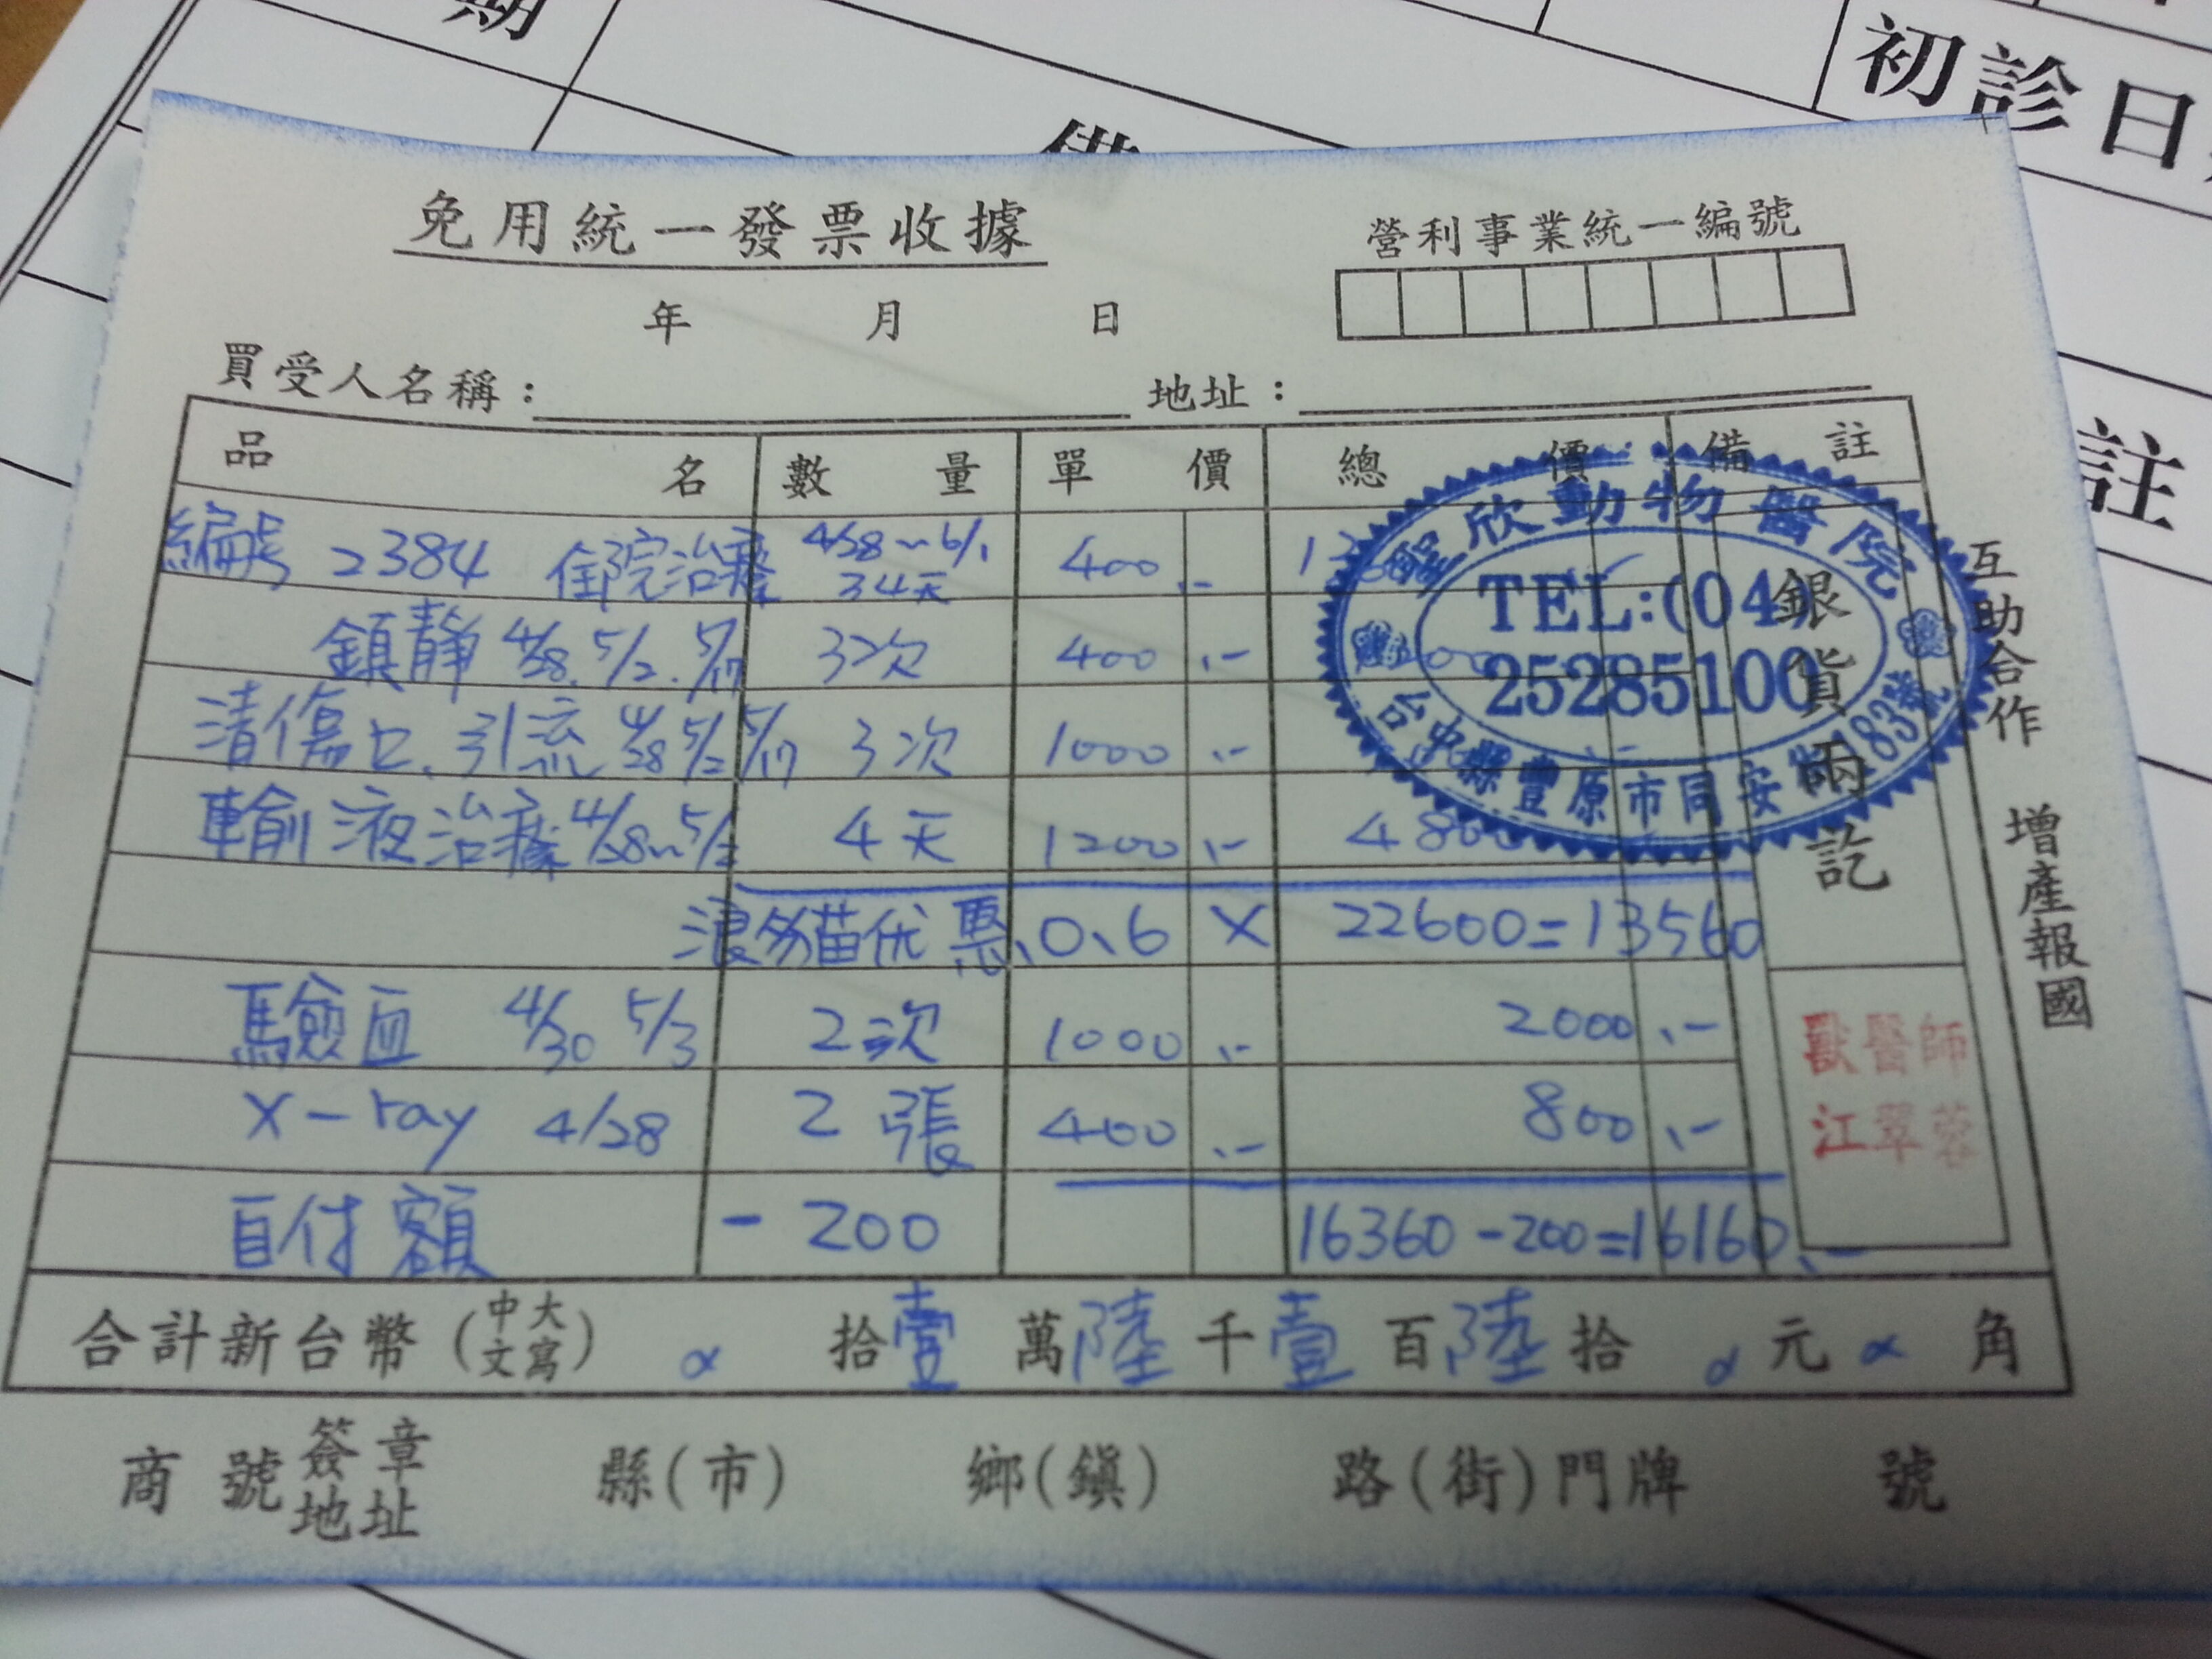 初診日
註
免用統一發票收據
營利事業統一編號
年 月 日
買受人名稱： 地址：
品 名 數 量 單 價 總 價 備 註
編号 2384 住院治療 4/28~6/1 34天 400.-
鎮靜 4/28. 5/2. 5/17 3次 400.-
清傷口、引流 4/28 5/2 5/17 3次 1000.-
輸液治療 4/28~5/2 4天 1200.- 4800
浪貓优惠、0.6 X 22600=13560
驗血 4/30 5/3 2次 1000.- 2000.-
X-ray 4/28 2張 400.- 800.-
自付額 -200 16360-200=16160.-
聖欣動物醫院
TEL:(04)
25285100
台中縣豐原市同安街183號
銀貨兩訖
獸醫師
江翠蓉
互助合作 增產報國
合計新台幣(中文大寫) 拾壹萬陸千壹百陸拾 元 角
商號簽章地址 縣(市) 鄉(鎮) 路(街)門牌 號